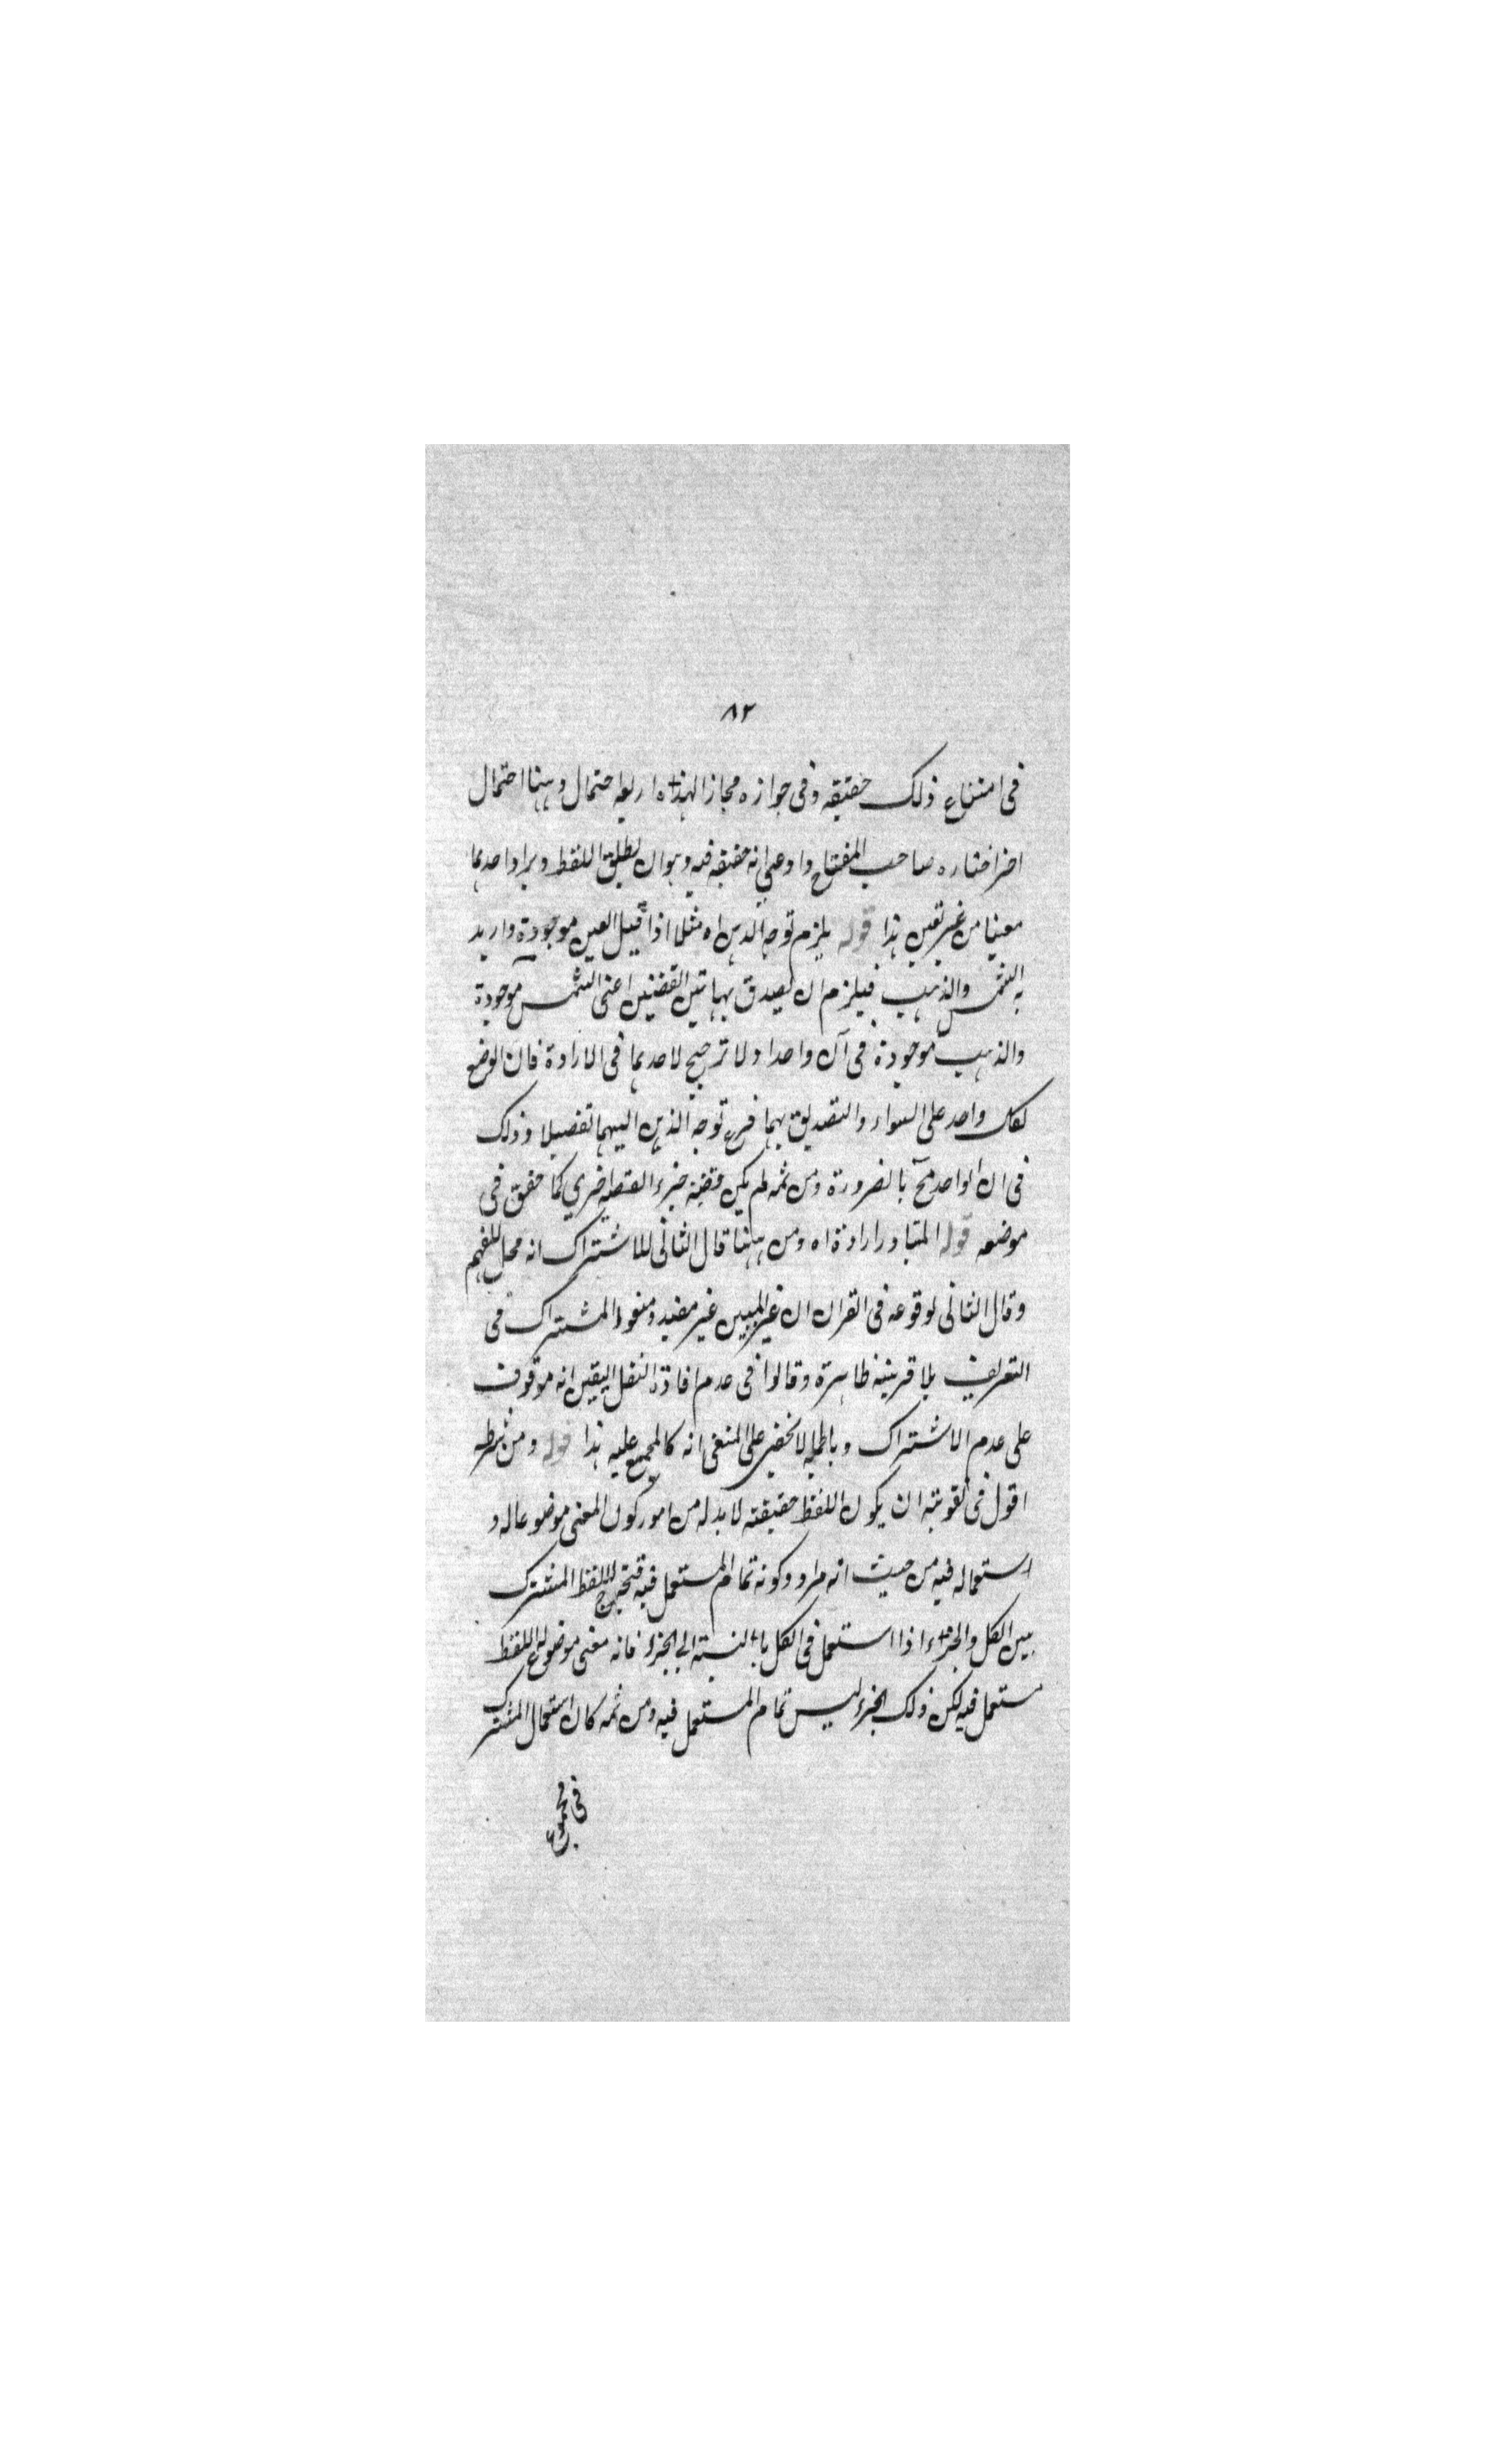 ٨٢
فى امتناع ذلك حقيقه وفى جوازه مجازا فهذه اربعه احتمال وههنا احتمال
اخر اختاره صاحب المفتاح وادعى انه حقيقه فيه وهو ان يطلق اللفظ ويراد احدهما
معينا من غير تعين هذا قوله يلزم توجه الذهن اه مثلا اذا قيل العين موجودة واريد
به الشمس والذهب فيلزم ان يصدق بهاتين القضيتين اعنى الشمس موجودة
والذهب موجودة فى آن واحد اذ لا ترجيح لاحدهما فى الارادة فان الوضع
لكل واحد على السواء والتصديق بهما فرع توجه الذهن اليهما تفصيلا وذلك
فى الان الواحد مح بالضرورة ومن ثمه لم يكن قضية جزء القضية اخرى كما حقق فى
موضعه قوله المتبادر ارادة اه ومن ههنا قال الثانى للاشتراك انه مخل للفهم
وقال الثانى لوقوعه فى القران ان غير المبين غير مفيد ومنعوا المشترك فى
التعريف بلا قرينة ظاهرة وقالوا فى عدم افادة النقل اليقين انه موقوف
على عدم الاشتراك وبالجملة لا يخفى على المتتبع انه كالمجمع عليه هذا قوله ومن شرطه
اقول فى تقويته ان يكون اللفظ حقيقة لا بد له من امور كون المعنى موضوعا له و
استعماله فيه من حيث انه مراد وكونه تمام المستعمل فيه فتخرج اللفظ المشترك
بين الكل والجزء اذا استعمل فى الكل بالنسبة الى الجزء فانه معنى موضوع له اللفظ
مستعمل فيه لكن ذلك الجزء ليس تمام المستعمل فيه ومن ثمه كان استعمال المشترك
فى مجموع